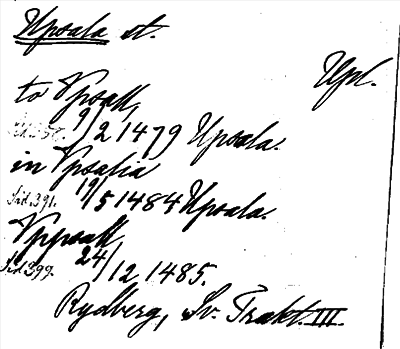 Upsala st.
Upl.
to Vpsall,
9/2 1479 Upsala.
in Vpsalia
Sid. 391. 19/5 1484 Upsala.
Vppsall
Sid. 399. 24/12 1485.
Rydberg, Sv. Trakt. III.